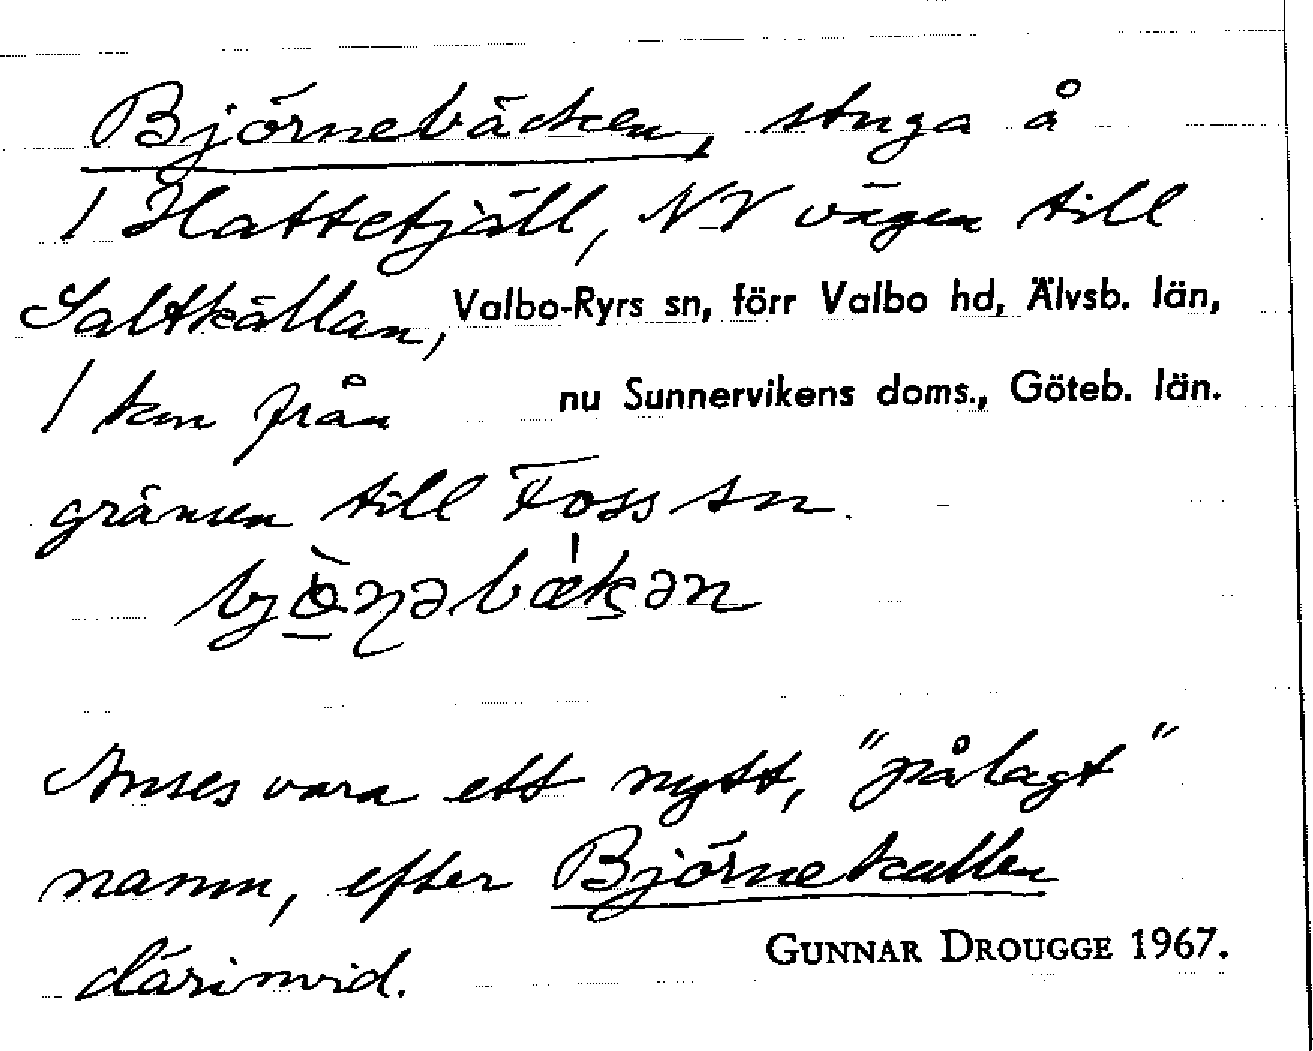 Björnebäcken, stuga å
1 Hattefjäll, NV vägen till
Saltkällan, Valbo-Ryrs sn, förr Valbo hd, Älvsb. län,
1 km från nu Sunnervikens doms., Göteb. län.
gränsen till Foss sn.
bjö̀ṇəbæ'kən
Anses vara ett nytt, "pålagt"
namn, efter Björnekullen
därinvid.
GUNNAR DROUGGE 1967.